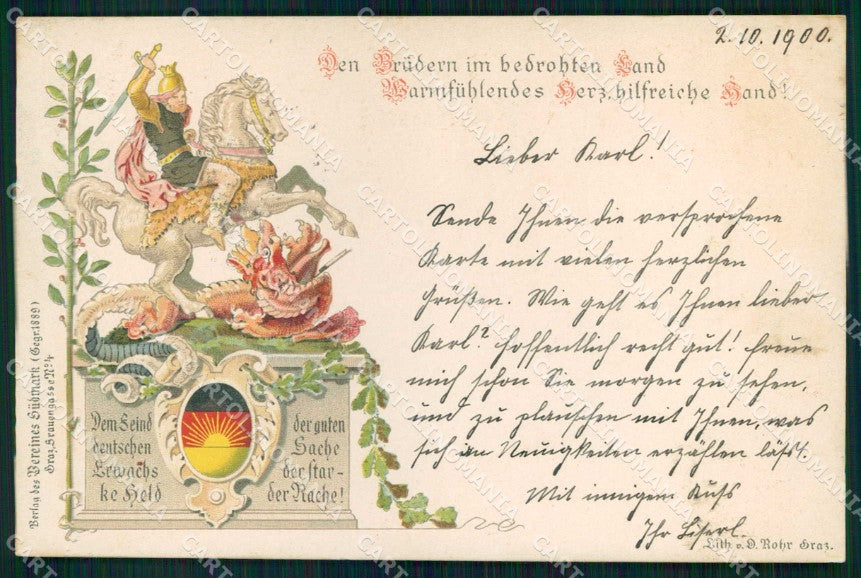 2.10.1900.
Den Brüdern im bedrohten Land
Warmfühlendes Herz, hilfreiche Hand!
Lieber Karl!
Sende Ihnen die versprochene
Karte mit vielen herzlichen
Grüßen. Wie geht es Ihnen lieber
Karl? Hoffentlich recht gut! freue
mich schon Sie morgen zu sehen,
und zu plauschen mit Ihnen, was
sich an Neuigkeiten erzählen läßt.
Mit innigem Kuß
Ihr Liserl.
Dem Feind der guten
deutschen Sache
Erwachs der star-
ke Held der Rache!
Verlag des Vereines Südmark (Gegr. 1889)
Graz, Frauengasse No. 4
Lith. v. D. Rohr Graz.
CARTOLINOMANIA